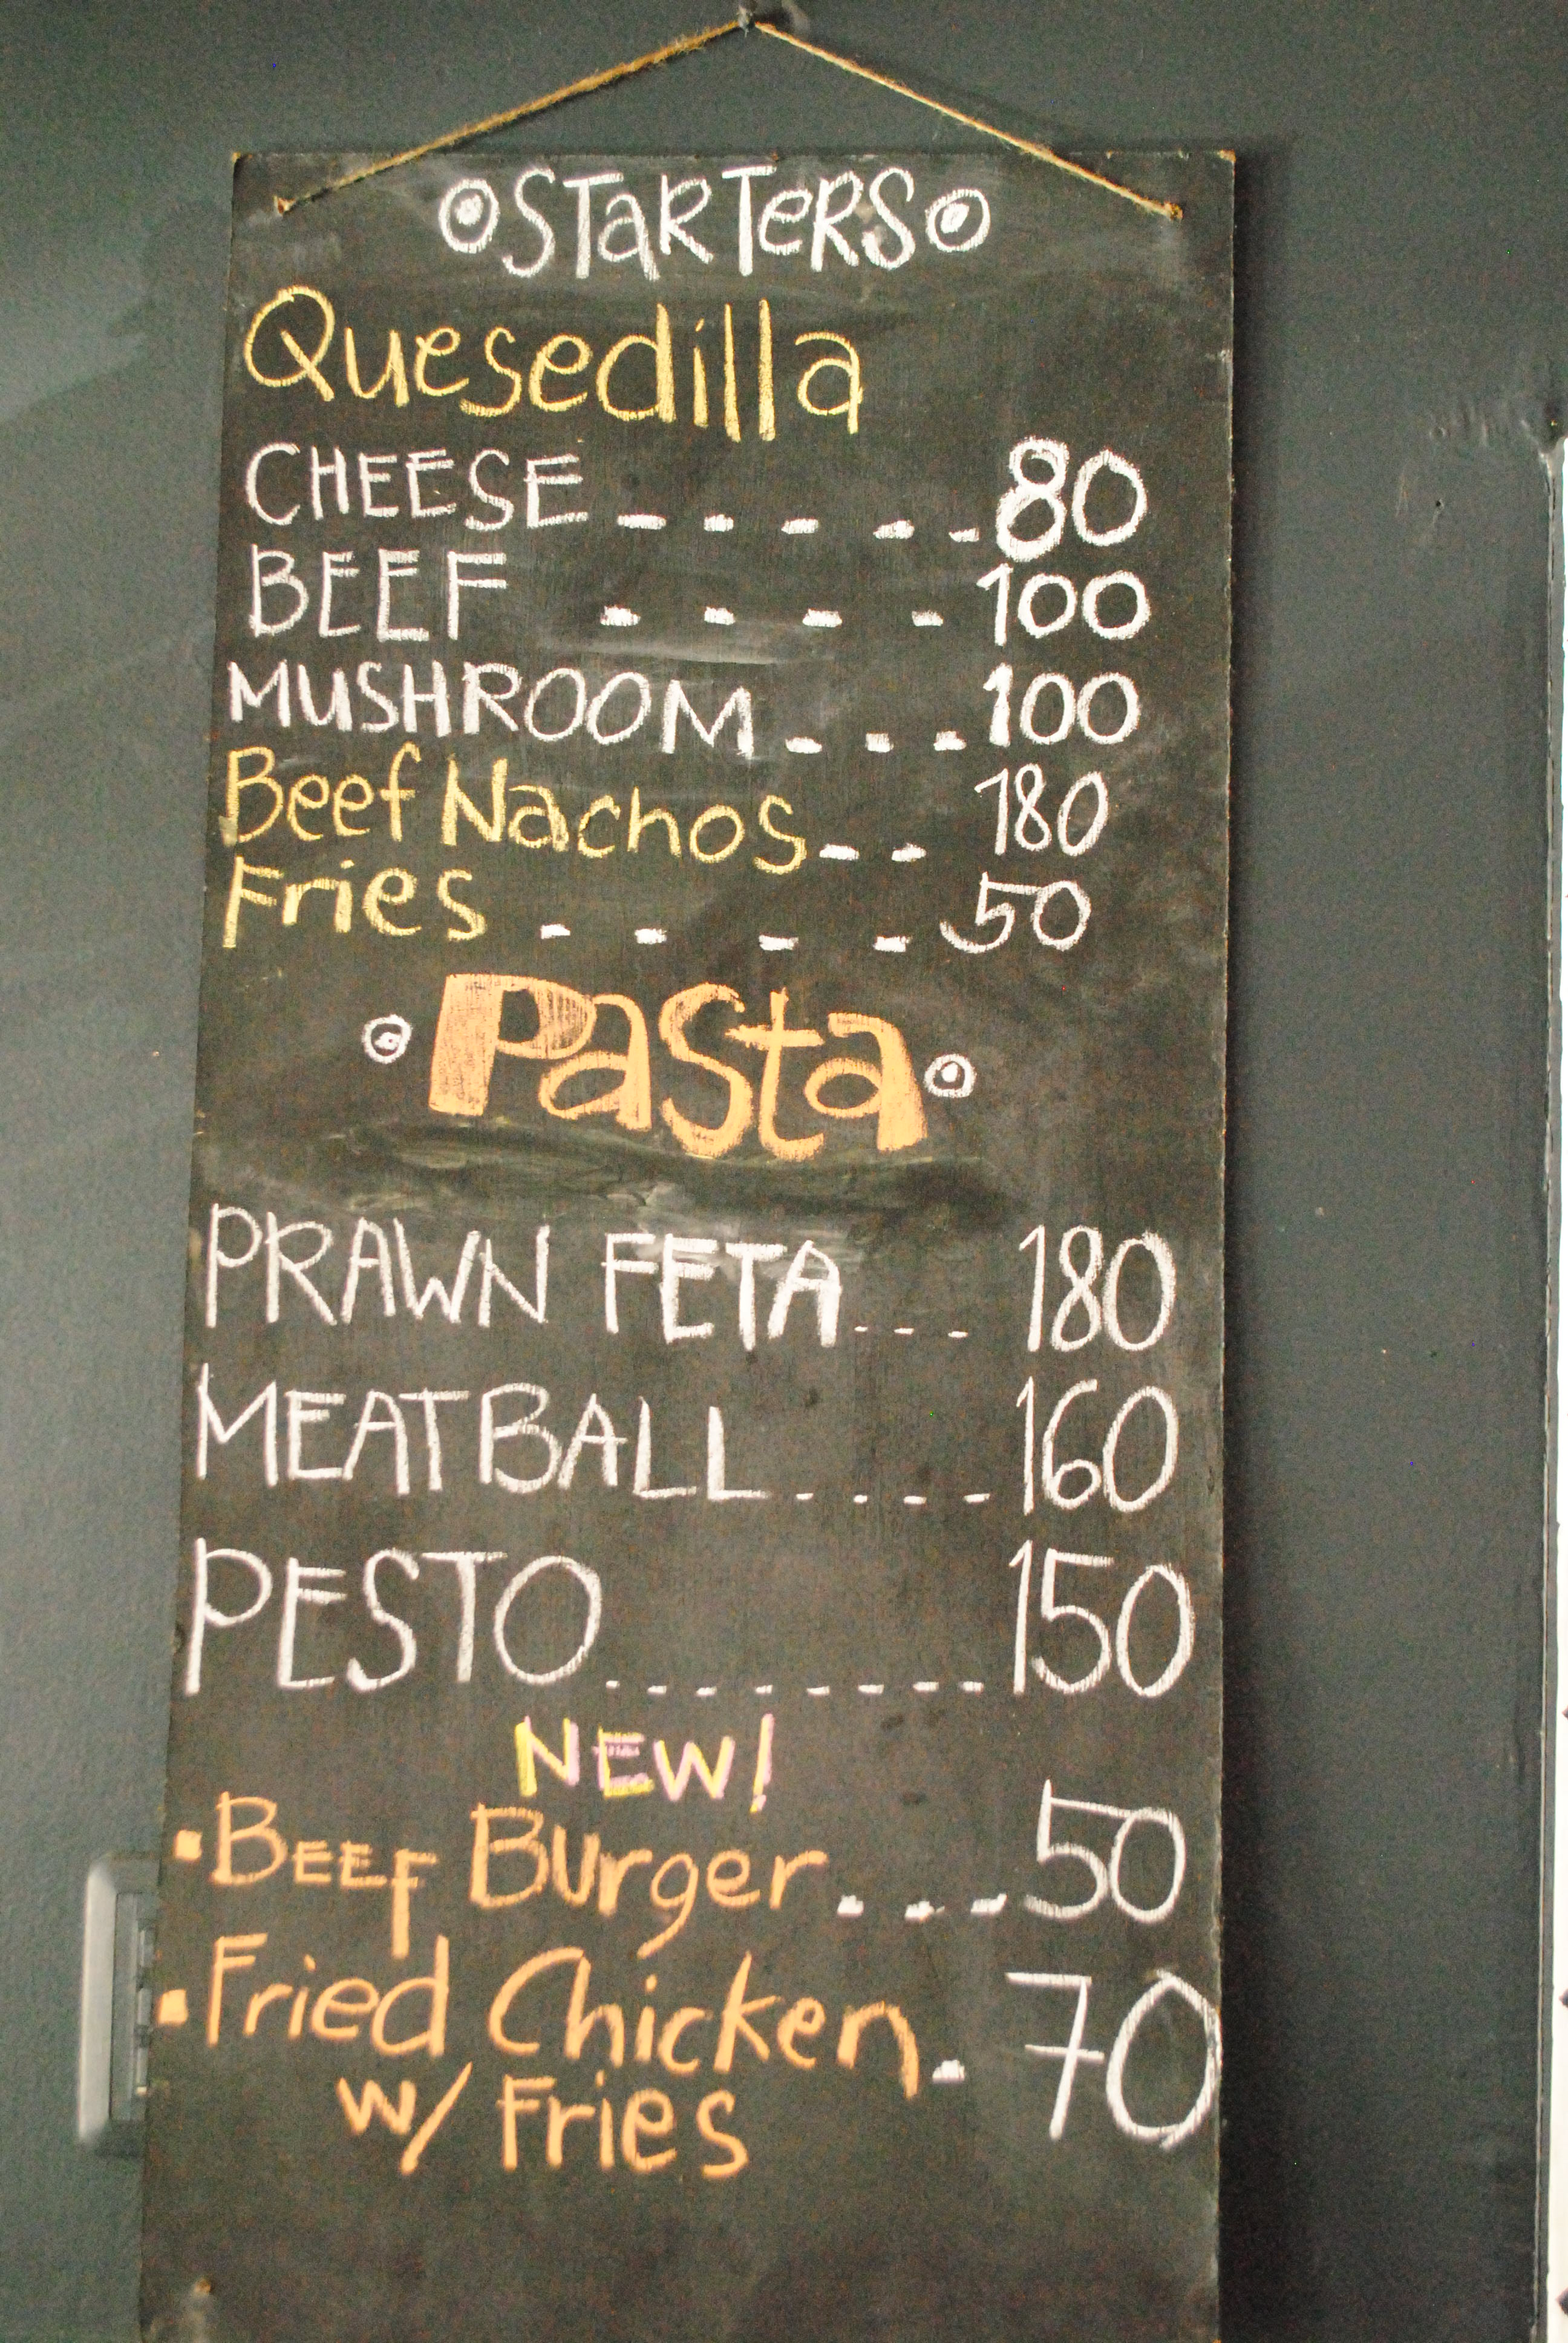 STARTERS
Quesedilla
CHEESE - - - - - 80
BEEF - - - - 100
MUSHROOM - - - 100
Beef Nachos - - 180
Fries - - - - 50
Pasta
PRAWN FETA - - - - 180
MEATBALL - - - - - 160
PESTO - - - - - - - - - 150
NEW!
• BEEF Burger - - - 50
• Fried Chicken - 70
w/ Fries